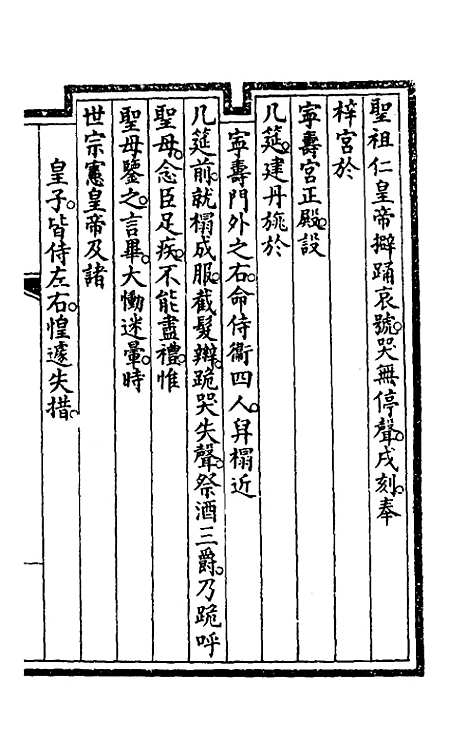 聖祖仁皇帝擗踊哀號。哭無停聲。戌刻。奉
梓宮於
寧壽宮正殿。設
几筵。建丹旐於
寧壽門外之右。命侍衛四人。舁榻近
几筵前。就榻成服。截髮辮。跪哭失聲。祭酒三爵。乃跪呼
聖母。念臣足疾。不能盡禮。惟
聖母鑒之。言畢。大慟迷暈。時
世宗憲皇帝及諸
皇子。皆侍左右。惶遽失措。